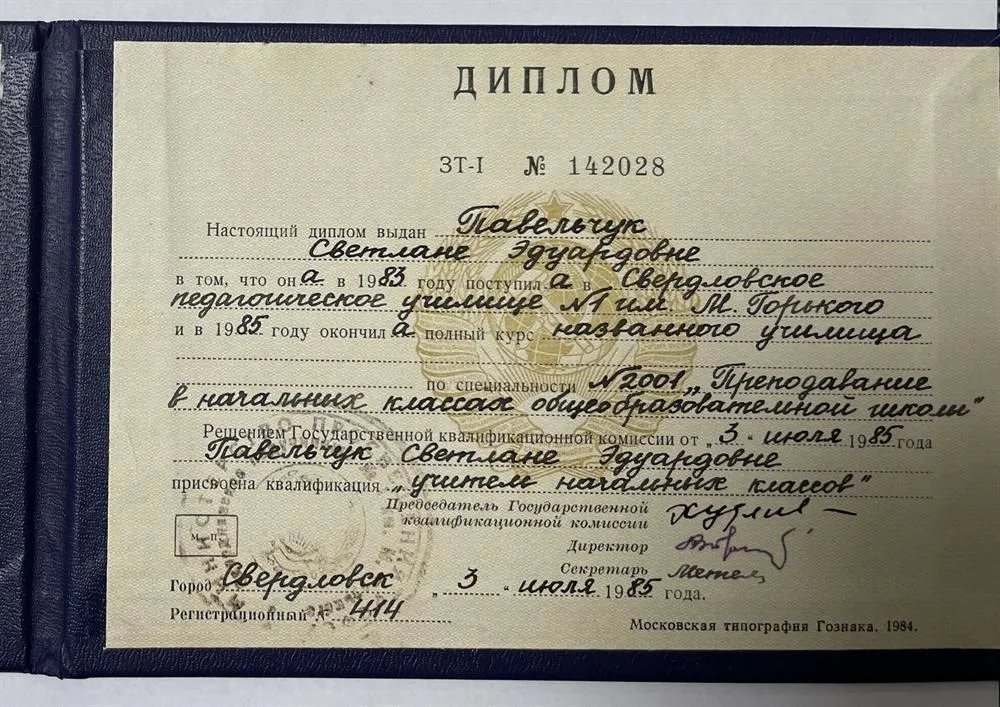 ДИПЛОМ
ЗТ-I № 142028
Настоящий диплом выдан Павельчук
Светлане Эдуардовне
в том, что она в 1983 году поступила в Свердловское
педагогическое училище №1 им. М. Горького
и в 1985 году окончила полный курс названного училища
по специальности №2001 „Преподавание
в начальных классах общеобразовательной школы"
Решением Государственной квалификационной комиссии от „3" июля 1985 года
Павельчук Светлане Эдуардовне
присвоена квалификация „учитель начальных классов"
Председатель Государственной
квалификационной комиссии
М. П.
Директор
Секретарь
Город Свердловск „3" июля 1985 года.
Регистрационный № 414
Московская типография Гознака. 1984.